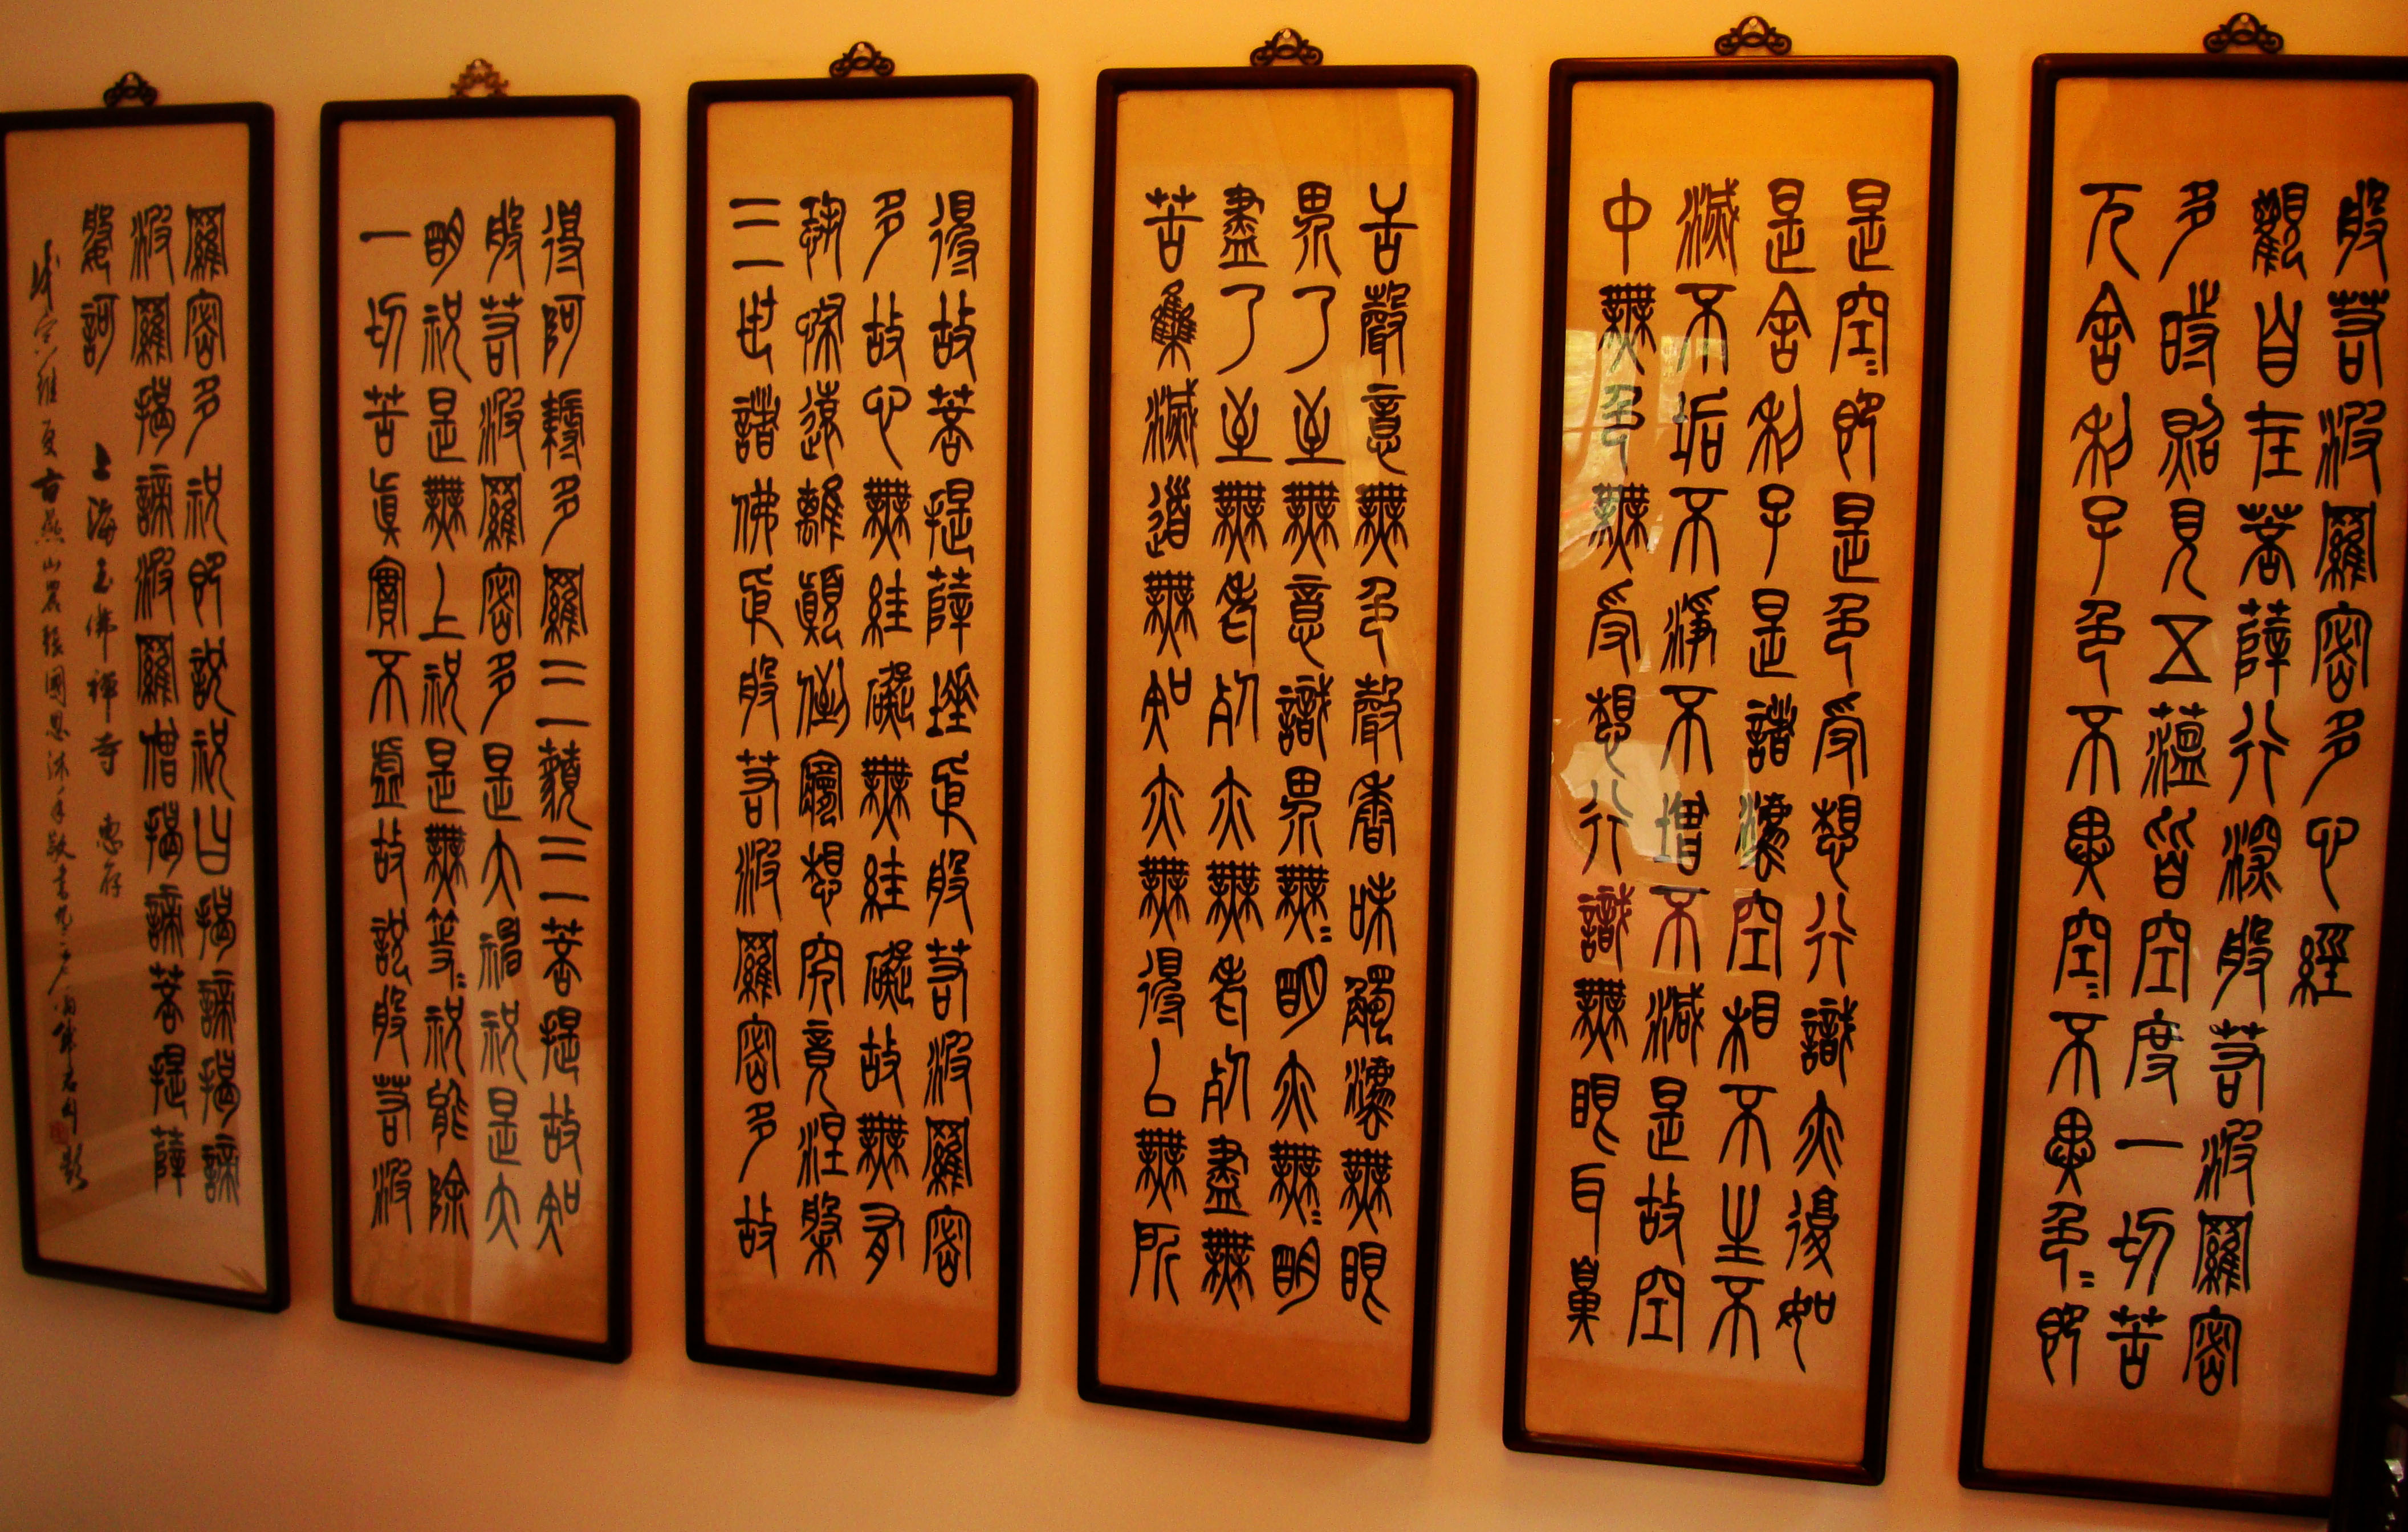 般若波羅密多心經
觀自在菩薩行深般若波羅密
多時照見五蘊皆空度一切苦
厄舍利子色不異空〻不異色〻即
是空〻即是色受想行識亦復如
是舍利子是諸法空相不生不
滅不垢不淨不增不減是故空
中無色無受想行識無眼耳鼻
舌聲意無色聲香味觸法無眼
界乃至無意識界無〻明亦無〻明
盡乃至無老死亦無老死盡無
苦集滅道無知亦無得以無所
得故菩提薩埵依般若波羅密
多故心無罣礙無罣礙故無有
恐怖遠離顛倒夢想究竟涅槃
三世諸佛依般若波羅密多故
得阿耨多羅三藐三菩提故知
般若波羅密多是大神祝是大
明祝是無上祝是無等〻祝能除
一切苦真實不虛故說般若波
羅密多祝即說祝曰揭諦揭諦
波羅揭諦波羅僧揭諦菩提薩
婆訶
上海玉佛禪寺 惠存
夏古燕山農張國恩沐手敬書